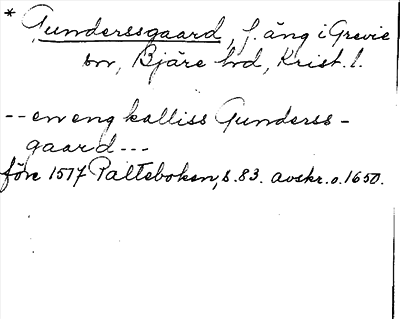 * Gunderssgaard, f. äng i Grevie
sn, Bjäre hd, Krist. l.
-- en eng kalliss Gunderss-
gaard ---
före 1517 Palteboken, s. 83. avskr. o. 1650.